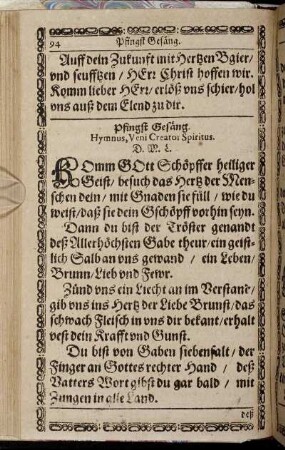 94 Pfingst Gesäng.
Auff dein Zukunft mit Hertzen Bgier/
vnd seufftzen / HErr Christ hoffen wir.
Komm lieber HErr/ erlöß vns schier/hol
vns auß dem Elend zu dir.
Pfingst Gesäng.
Hymnus, Veni Creator Spiritus.
D. M. L.
KOmm GOtt Schöpffer heiliger
Geist/ besuch das Hertz der Men-
schen dein/ mit Gnaden sie füll / wie du
weist/ daß sie dein Gschöpff vorhin seyn.
Dann du bist der Tröster genandt
deß Allerhöchsten Gabe theur/ ein geist-
lich Salb an vns gewand / ein Leben/
Brunn/Lieb vnd Fewr.
Zünd vns ein Liecht an im Verstand/
gib vns ins Hertz der Liebe Brunst/ das
schwach Fleisch in vns dir bekant/erhalt
vest dein Krafft vnd Gunst.
Du bist von Gaben siebenfalt / der
Finger an Gottes rechter Hand / deß
Vatters Wort gibst du gar bald / mit
Zungen in alle Land.
deß